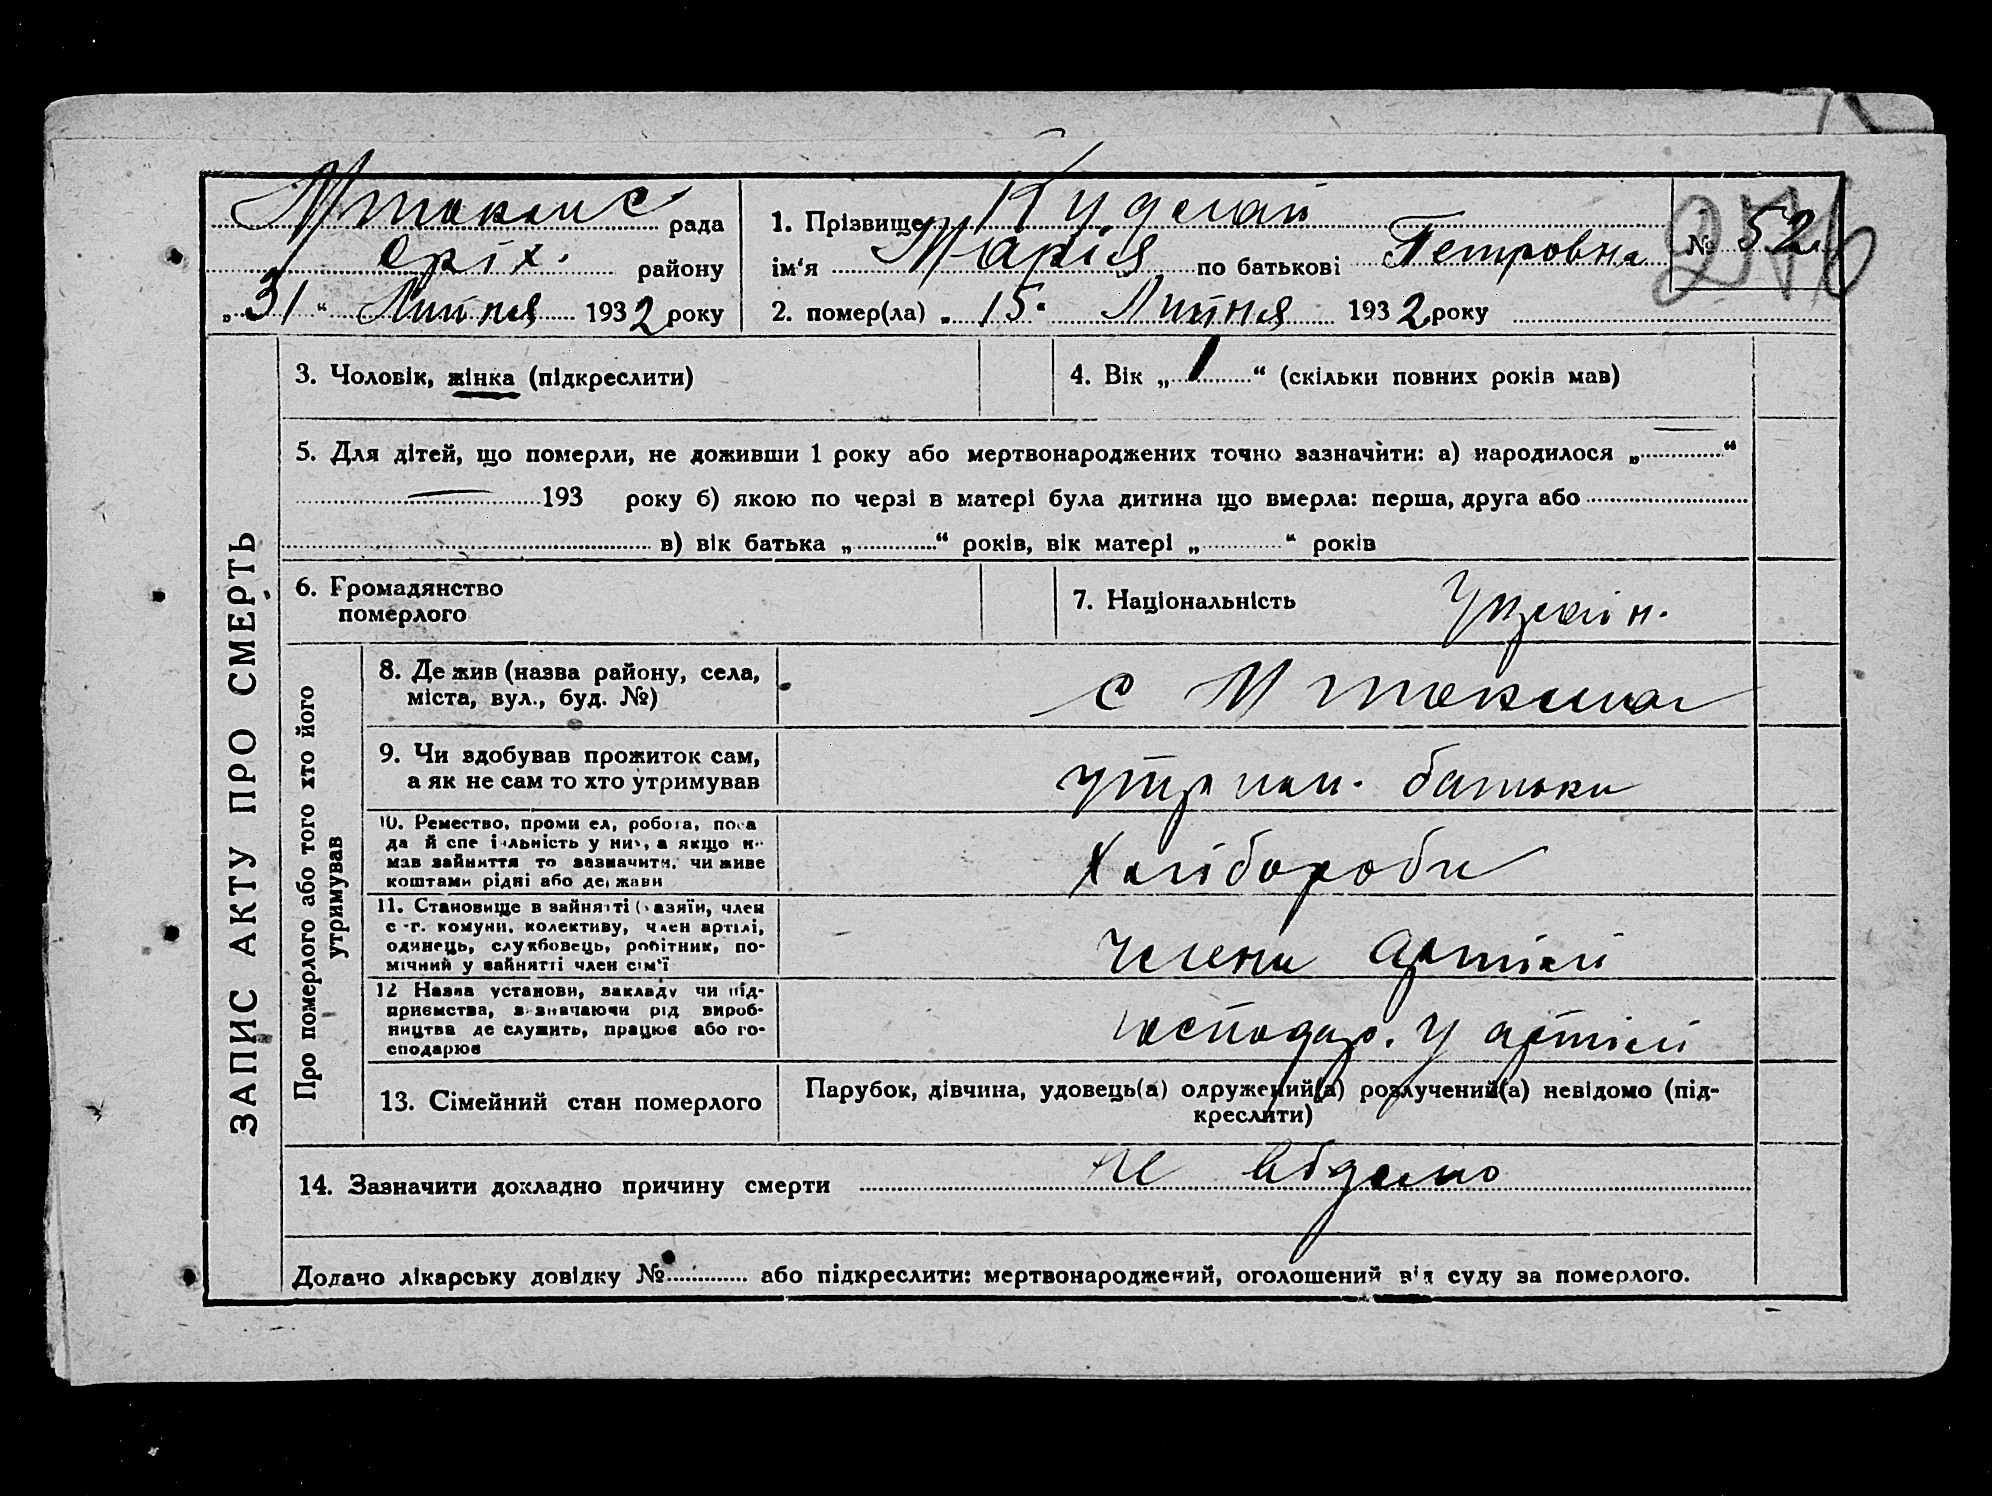 рада
1. Прізвище Куделай
№ 52
276
оріх. району
ім'я Марія по батькові Петровна
„ 31 “ Липня 1932 року
2. помер(ла) „ 15. Липня 1932 року
ЗАПИС АКТУ ПРО СМЕРТЬ
3. Чоловік, жінка (підкреслити)
4. Вік „ 1 “ (скільки повних років мав)
5. Для дітей, що померли, не доживши 1 року або мертвонароджених точно зазначити: а) народилося „ — “
— 193 року б) якою по черзі в матері була дитина що вмерла: перша, друга або
в) вік батька „ “ років, вік матері „ “ років
6. Громадянство
померлого
7. Національність Україн.
Про померлого або того хто його
утримував
8. Де жив (назва району, села,
міста, вул., буд. №)
с
9. Чи здобував прожиток сам,
а як не сам то хто утримував
утриман. батьки
10. Ремество, промисел, робота, поса
да й спеціяльність у них, а якщо н
мав зайняття то зазначити, чи живе
коштами рідні або держави
Хлібороби
11. Становище в зайнятті (хазяїн, член
с.-г. комуни, колективу, член артілі,
одинець, службовець, робітник, по-
мічний у зайнятті член сім'ї
члени артілі
12 Назва установи, закладу чи під-
приємства, зазначаючи рід вироб-
ництва де служить, працює або го-
сподарює
господар. у артілі
13. Сімейний стан померлого
Парубок, дівчина, удовець(а) одружений(а) розлучений(а) невідомо (під-
креслити)
14. Зазначити докладно причину смерти не відомо
Додачо лікарську довідку № або підкреслити: мертвонароджений, оголошений від суду за померлого.